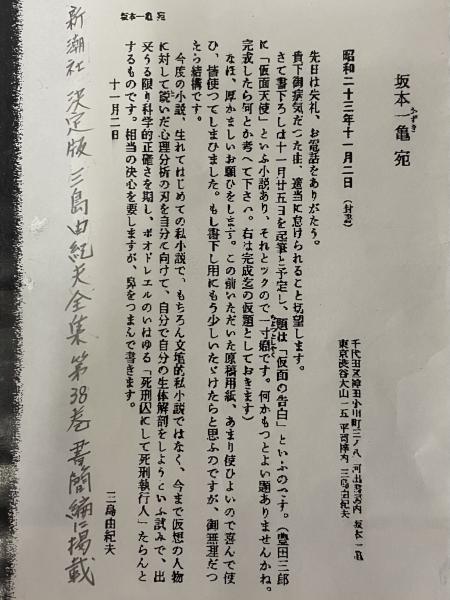 坂本一亀 宛
坂本一亀 宛
かずき
昭和二十三年十一月二日 (封書)
千代田区神田小川町三ノ八 河出書房内 坂本一亀
東京渋谷大山一五 平岡梓内 三島由紀夫
先日は失礼、お電話をありがたう。
貴下御病気だつた由、適当に怠けられること切望します。
さて書下ろしは十一月廿五日を起筆と予定し、題は「仮面の告白」といふのです。(豊田三郎
に「仮面天使」といふ小説あり、それとツクので一寸媚です。何かもつとよい題ありませんかね。
完成したら何とか考へて下さい。右は完成迄の仮題としておきます)
なほ、厚かましいお願ひをします。この前いただいた原稿用紙、あまり使ひよいので喜んで使
ひ、皆使つてしまひました。もし書下し用にもう少しいたゞけたらと思ふのですが、御無理だつ
たら結構です。
今度の小説、生れてはじめての私小説で、もちろん文壇的私小説ではなく、今まで仮想の人物
に対して鋭いだ心理分析の刃を自分に向けて、自分で自分の生体解剖をしようといふ試みで、出
来うる限り科学的正確さを期し、ボオドレエルのいはゆる「死刑囚にして死刑執行人」たらんと
するものです。相当の決心を要しますが、鼻をつまんで書きます。
十一月二日
三島由紀夫
新潮社 決定版 三島由紀夫全集 第38巻 書簡編に掲載